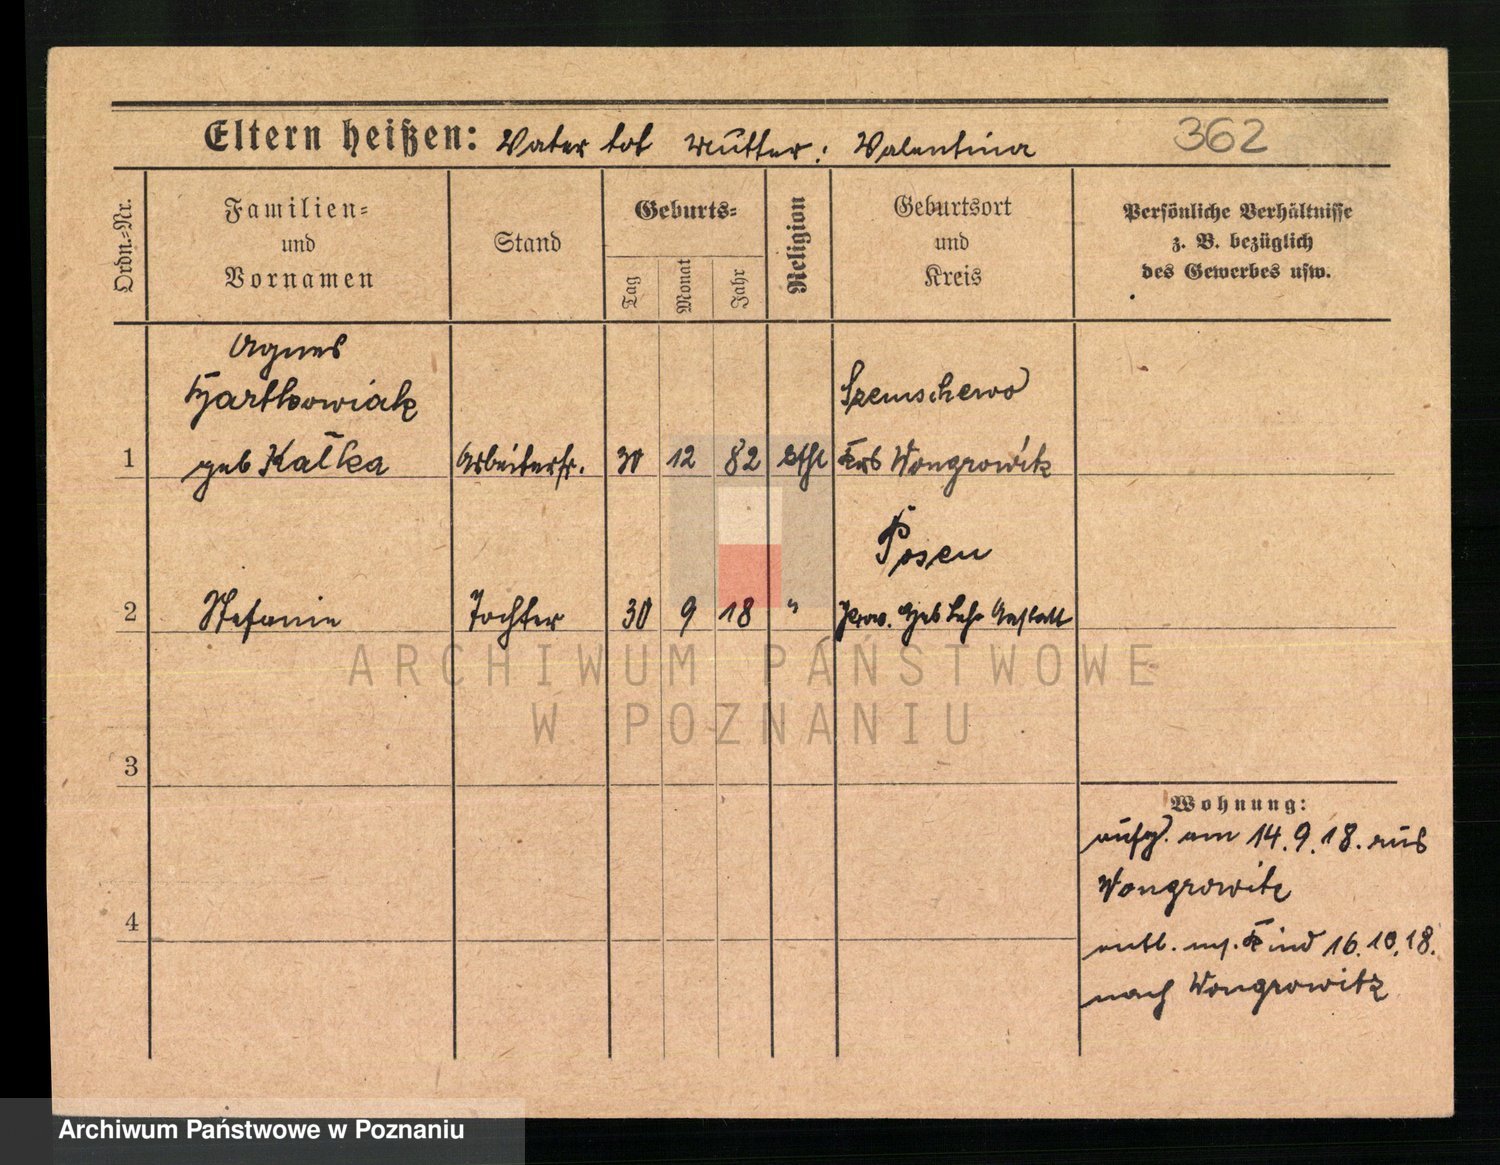 362
Eltern heißen: Vater tot Mutter: Valentina
Ordn.-Nr.
Familien-
und
Vornamen
Stand
Geburts-
Tag
Monat
Jahr
Religion
Geburtsort
und
Kreis
Persönliche Verhältnisse
z. B. bezüglich
des Gewerbes usw.
Agnes
Hartkowiak
Szemschewo
1 geb Kalka Arbeiterfr. 30 12 82 kthl Krs Wongrowitz
Posen
2 Stefanie Tochter 30 9 18 " Prov. Heb Lehr Anstalt
3
Wohnung:
aufg. am 14.9.18. aus
Wongrowitz
4
entl. m. Kind 16.10.18.
nach Wongrowitz
ARCHIWUM PAŃSTWOWE
W POZNANIU
Archiwum Państwowe w Poznaniu